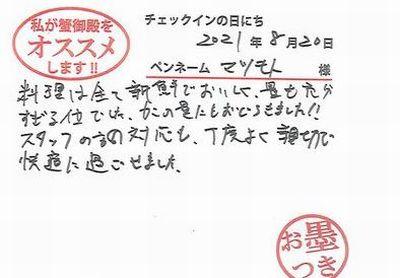 私が蟹御殿を
オススメ
します!!
チェックインの日にち
2021年8月20日
ペンネーム マツモト 様
料理は全て新鮮でおいしく、量も充分
すぎる位でした。カニの量にもおどろきました!!
スタッフの方の対応も、丁度よく親切で
快適に過ごせました。
お墨
つき